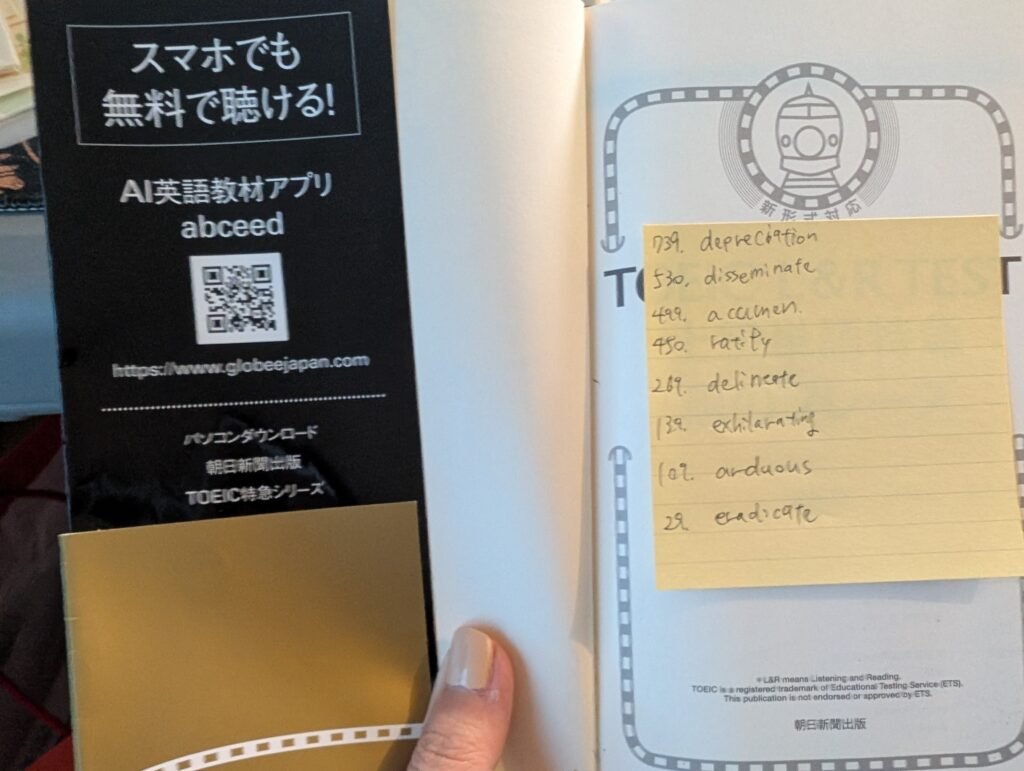 スマホでも
無料で聴ける!
AI英語教材アプリ
abceed
https://www.globeejapan.com
パソコンダウンロード
朝日新聞出版
TOEIC特急シリーズ
新形式対応
739. depreciation
530. disseminate
499. acumen.
450. ratify
269. delineate
139. exhilarating
109. arduous
29. eradicate
*L&R means Listening and Reading.
TOEIC is a registered trademark of Educational Testing Service (ETS).
This publication is not endorsed or approved by ETS.
朝日新聞出版